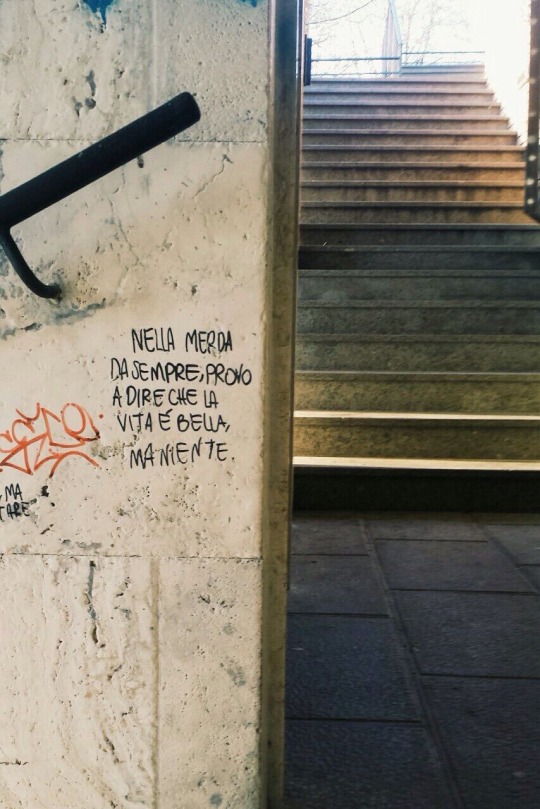 NELLA MERDA
DA SEMPRE, PROVO
A DIRE CHE LA
VITA É BELLA,
MA NIENTE.
MA
TARE